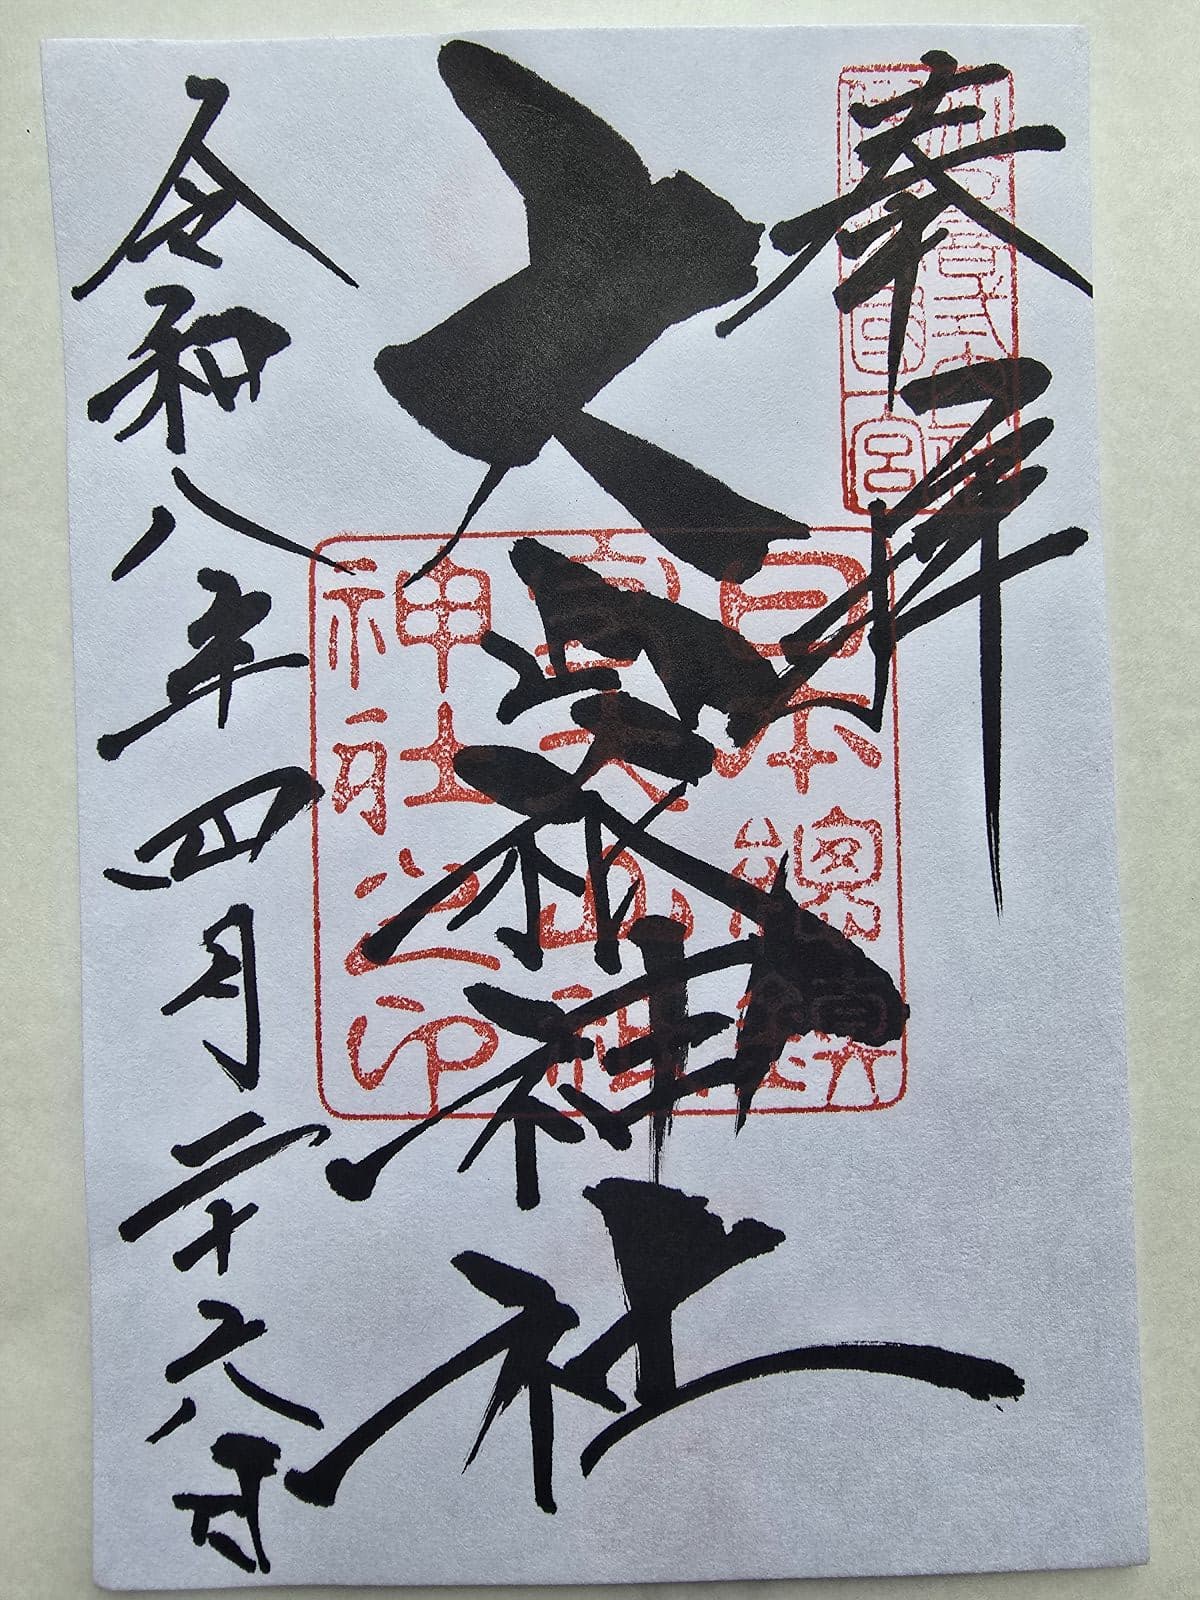 奉拝
大山祇神社
令和八年四月二十六日
日本總鎮
守大山祇
神社之印
國一宮